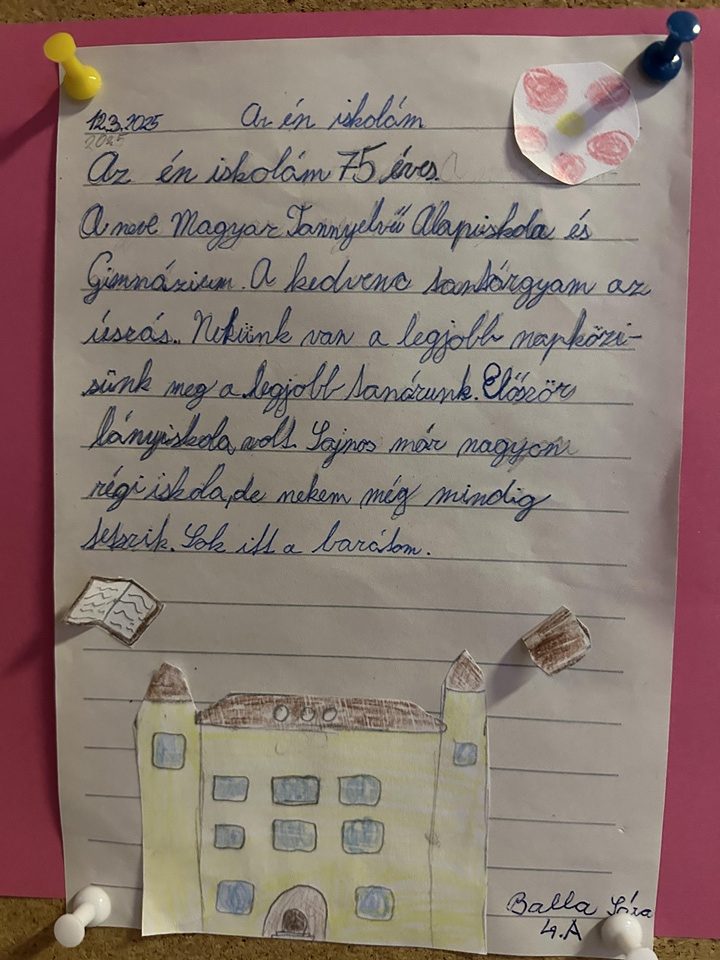 12.3.2025 Az én iskolám
2025
Az én iskolám 75 éves.
A neve Magyar Tannyelvű Alapiskola és
Gimnázium. A kedvenc tantárgyam az
úszás. Nekünk van a legjobb napközi-
sünk meg a legjobb tanárunk. Először
lányiskola volt. Sajnos már nagyon
régi iskola, de nekem még mindig
tetszik. Sok itt a barátom.
Balla Sára
4.A